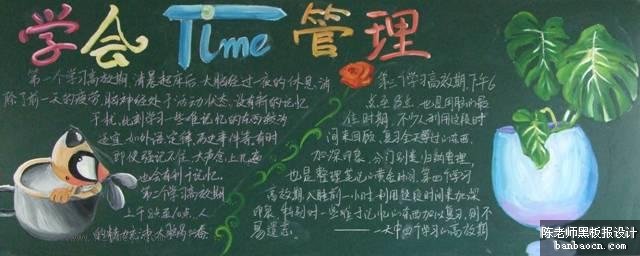 学会Time管理
第一个学习高效期:清晨起床后,大脑经过一夜的休息,消
除了前一天的疲劳,脑神经处于活动状态,没有新的记忆
干扰,此刻学习一些难记忆的东西较为
适宜,如外语、定律、历史事件等,有时
即使强记不住,大声念上几遍
也会有利于记忆。
第二个学习高效期
上午8点至10点,人
的精力充沛,大脑
第三个学习高效期:下午6
点至8点,也是用脑的最
佳时期,不少人利用这段时
间来回顾、复习全天学过的东西,
加深印象,分门别类,归纳整理,
也是整理笔记的黄金时间。第四个学习
高效期:入睡前一小时,利用这段时间来加深
印象,特别对一些难于记忆的东西加以复习,则不
易遗忘。——一天中四个学习的高效期
陈老师黑板报设计
banbaocn.com